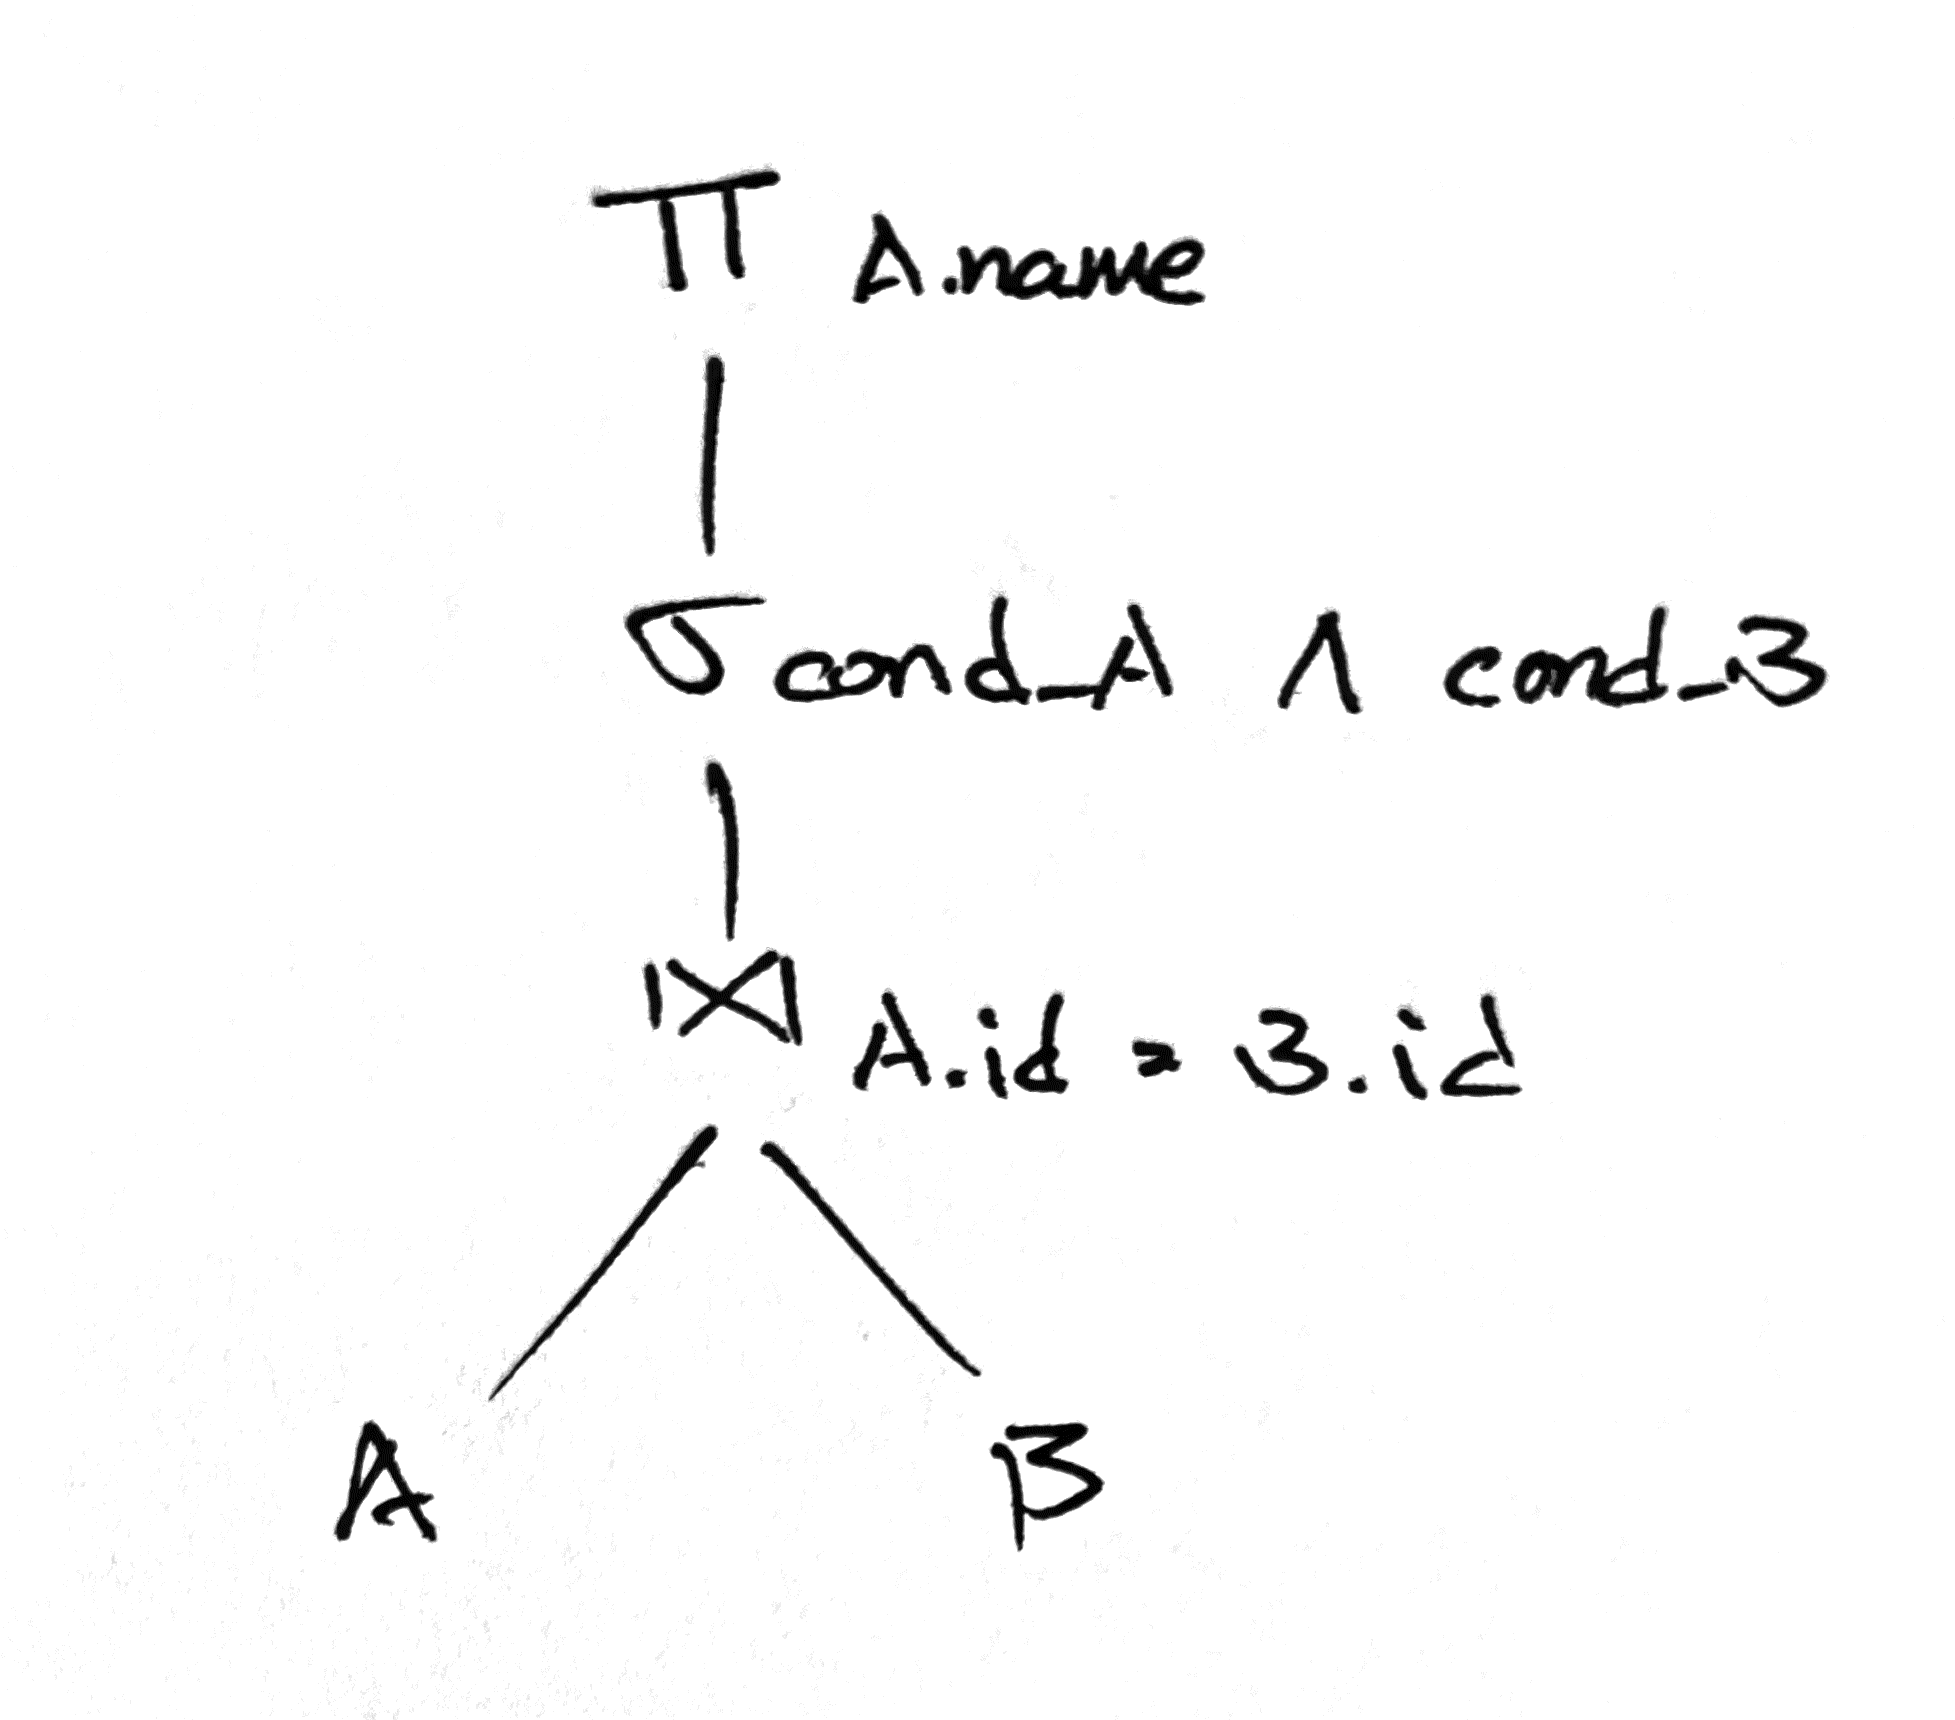 Π A.name
σ cond_A ∧ cond_B
⋈ A.id = B.id
A B